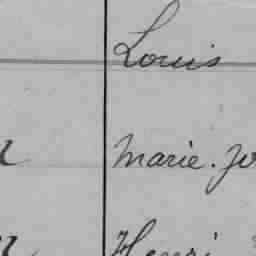 Louis
Marie. Jo
Henri